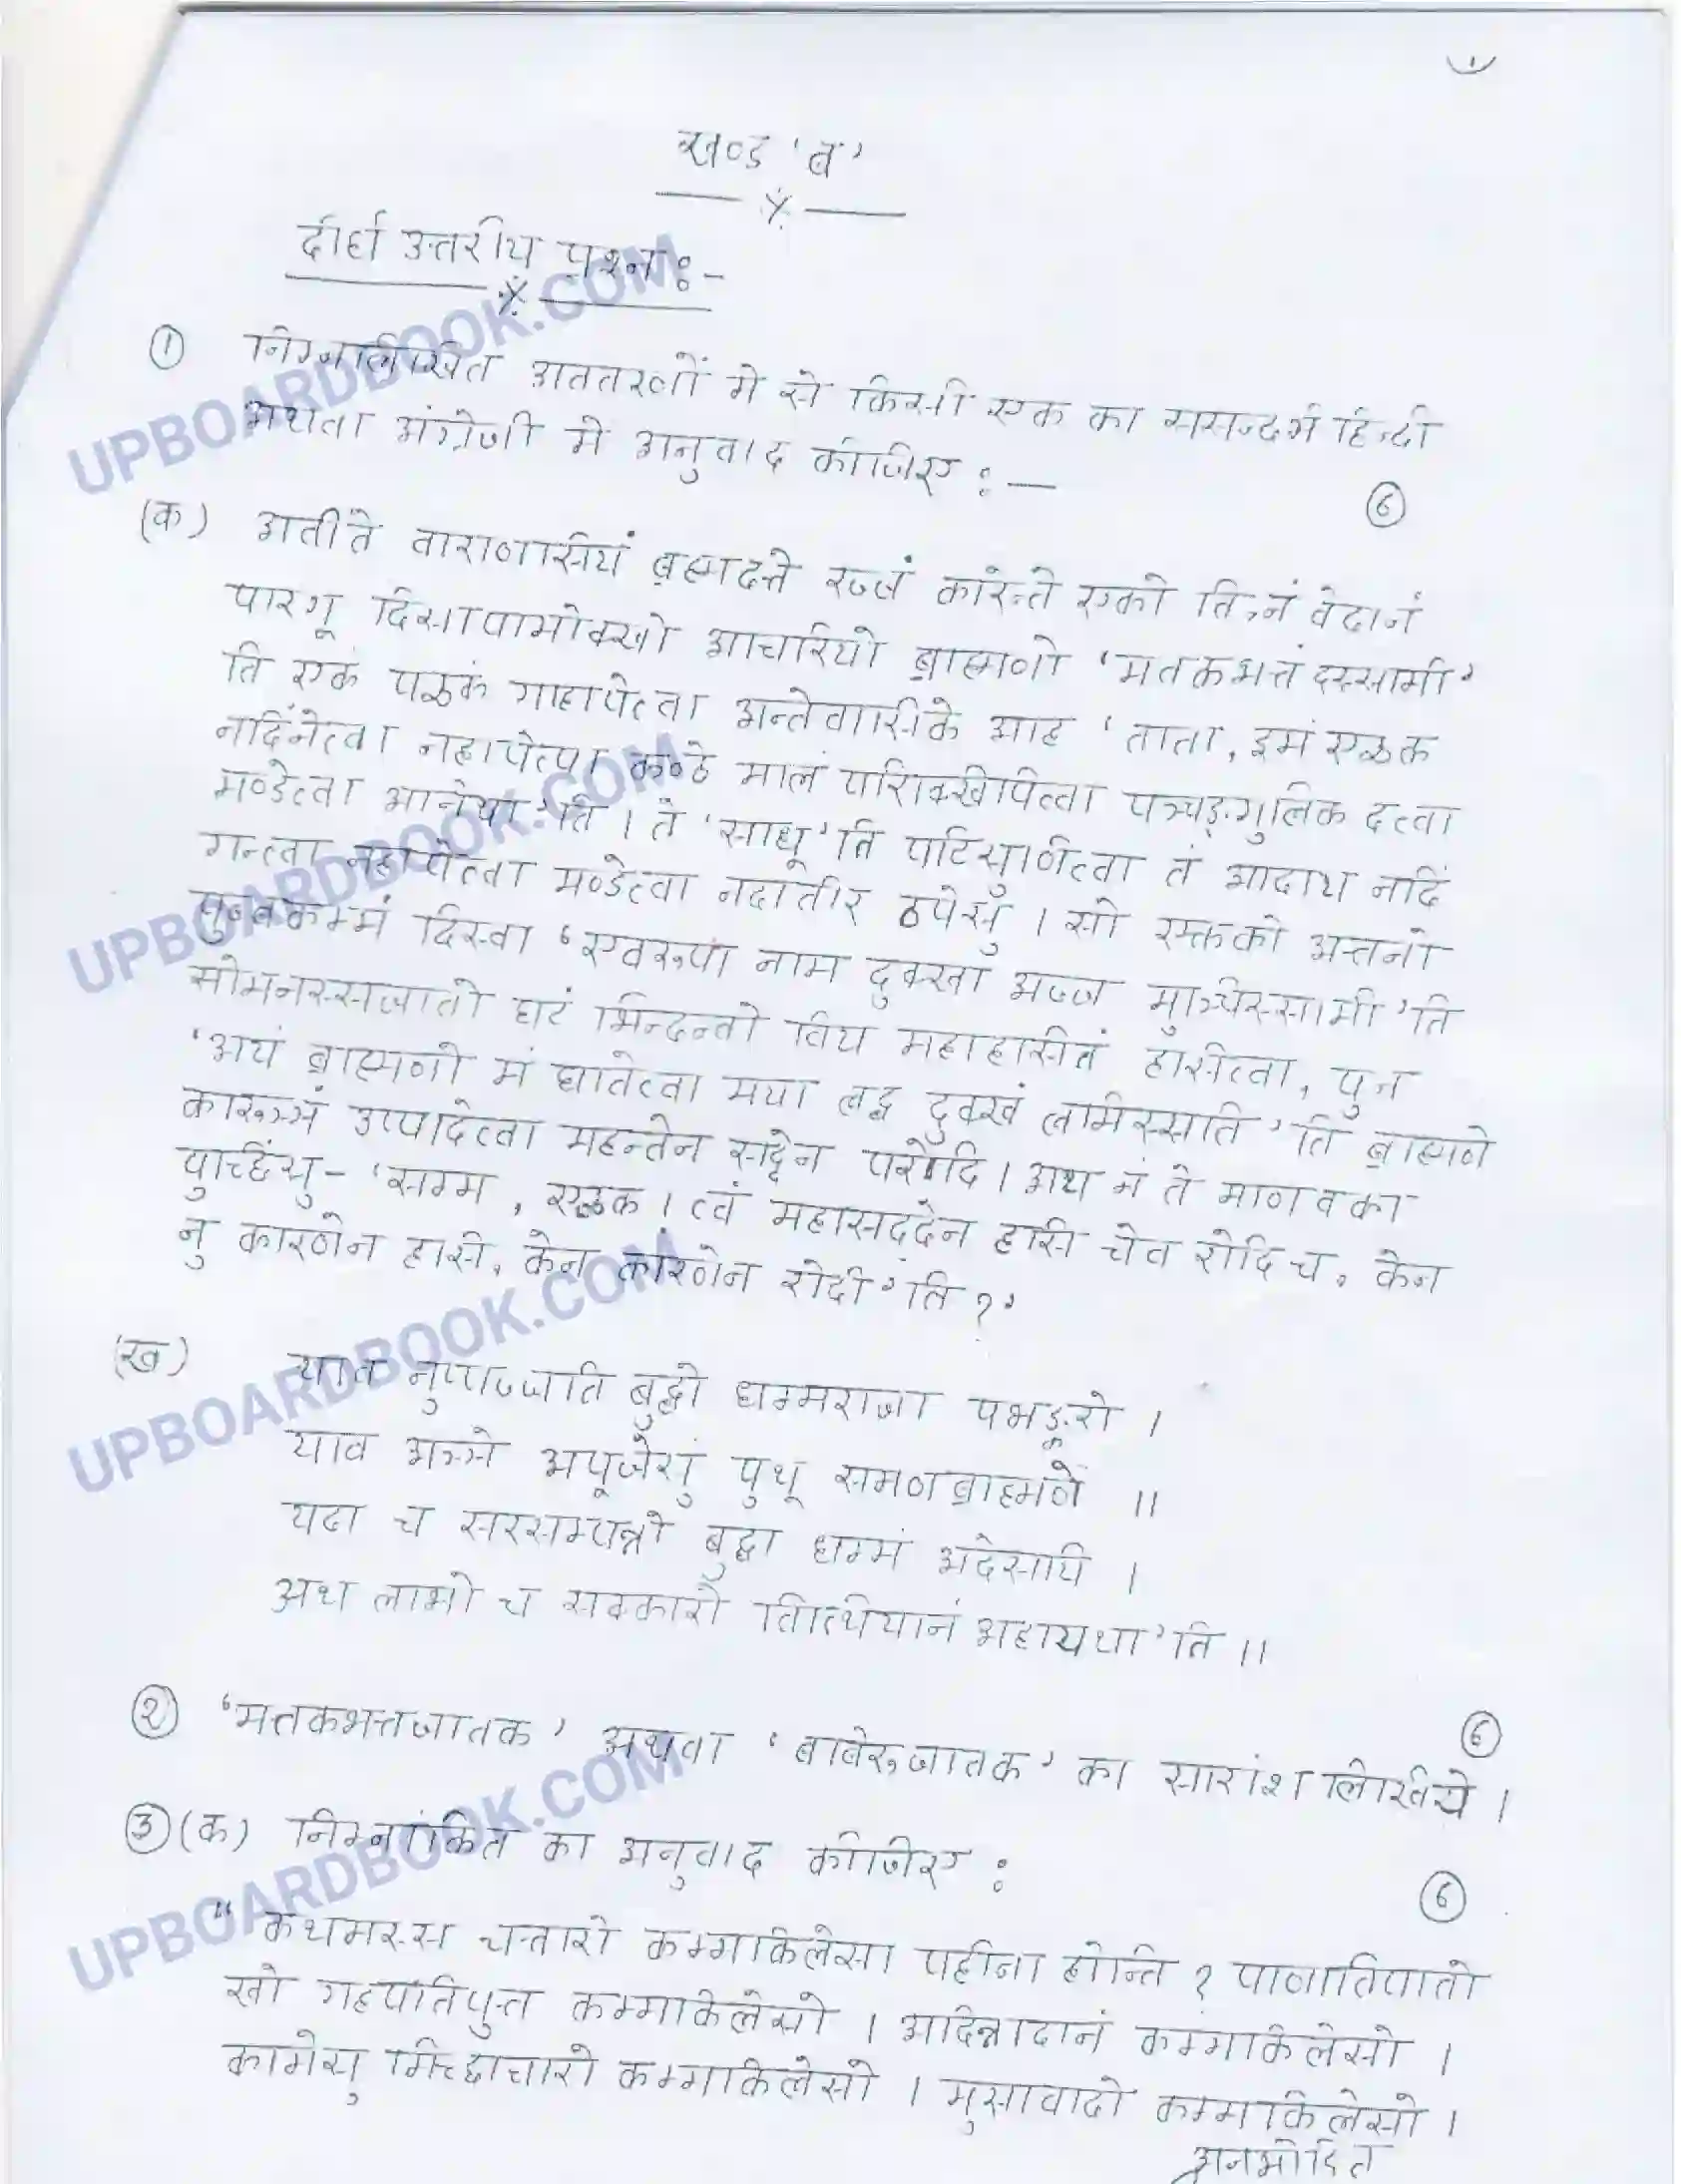 खण्ड 'ब'
दीर्घ उत्तरीय प्रश्न :-
① निम्नलिखित अवतरणों में से किसी एक का ससन्दर्भ हिन्दी
अथवा अंग्रेजी में अनुवाद कीजिए :—
⑥
(क) अतीते वाराणसियं ब्रह्मदत्ते रज्जं कारेन्ते एको तिन्नं वेदानं
पारगू दिसापामोक्खो आचरियो ब्राह्मणो 'मतकभत्तं दस्सामी'
ति एकं एळकं गाहापेत्वा अन्तेवासिके आह 'ताता, इमं एळकं
नदिंनेत्वा नहापेत्वा कण्ठे मालं परिक्खिपित्वा पञ्चङ्गुलिकं दत्वा
मण्डेत्वा आनेथा'ति । ते 'साधू'ति पटिसुणित्वा तं आदाय नदिं
गन्त्वा नहापेत्वा मण्डेत्वा नदीतीरे ठपेसुं । सो एळको अत्तनो
पुब्बकम्मं दिस्वा 'एवरूपा नाम दुक्खा अज्ज मुञ्चिस्सामी'ति
सोमनस्सजातो घटं भिन्दन्तो विय महाहसितं हसित्वा, पुन
'अयं ब्राह्मणो मं घातेत्वा मया लद्ध दुक्खं लभिस्सति'ति ब्राह्मणे
कारुञ्ञं उप्पादेत्वा महन्तेन सद्देन परोदि । अथ नं ते माणवका
पुच्छिंसु- 'सम्म, एळक । त्वं महासद्देन हसि चेव रोदि च, केन
नु कारणेन हसि, केन कारणेन रोदी'ति ?'
(ख) याव नुप्पज्जति बुद्धो धम्मराजा पभङ्करो ।
याव अञ्ञे अपूजेसुं पुथू समणब्राह्मणे ॥
यदा च सरसम्पन्नो बुद्धो धम्मं अदेसयि ।
अथ लाभो च सक्कारो तित्थियानं अहायथा'ति ॥
② 'मतकभत्तजातक' अथवा 'बावेरूजातक' का सारांश लिखिये ।
⑥
③ (क) निम्नांकित का अनुवाद कीजिए :
⑥
" कथमस्स चत्तारो कम्मकिलेसा पहीना होन्ति ? पाणातिपातो
खो गहपतिपुत्त कम्मकिलेसो । अदिन्नादानं कम्मकिलेसो ।
कामेसु मिच्छाचारो कम्मकिलेसो । मुसावादो कम्मकिलेसो ।
UPBOARDBOOK.COM
UPBOARDBOOK.COM
UPBOARDBOOK.COM
UPBOARDBOOK.COM